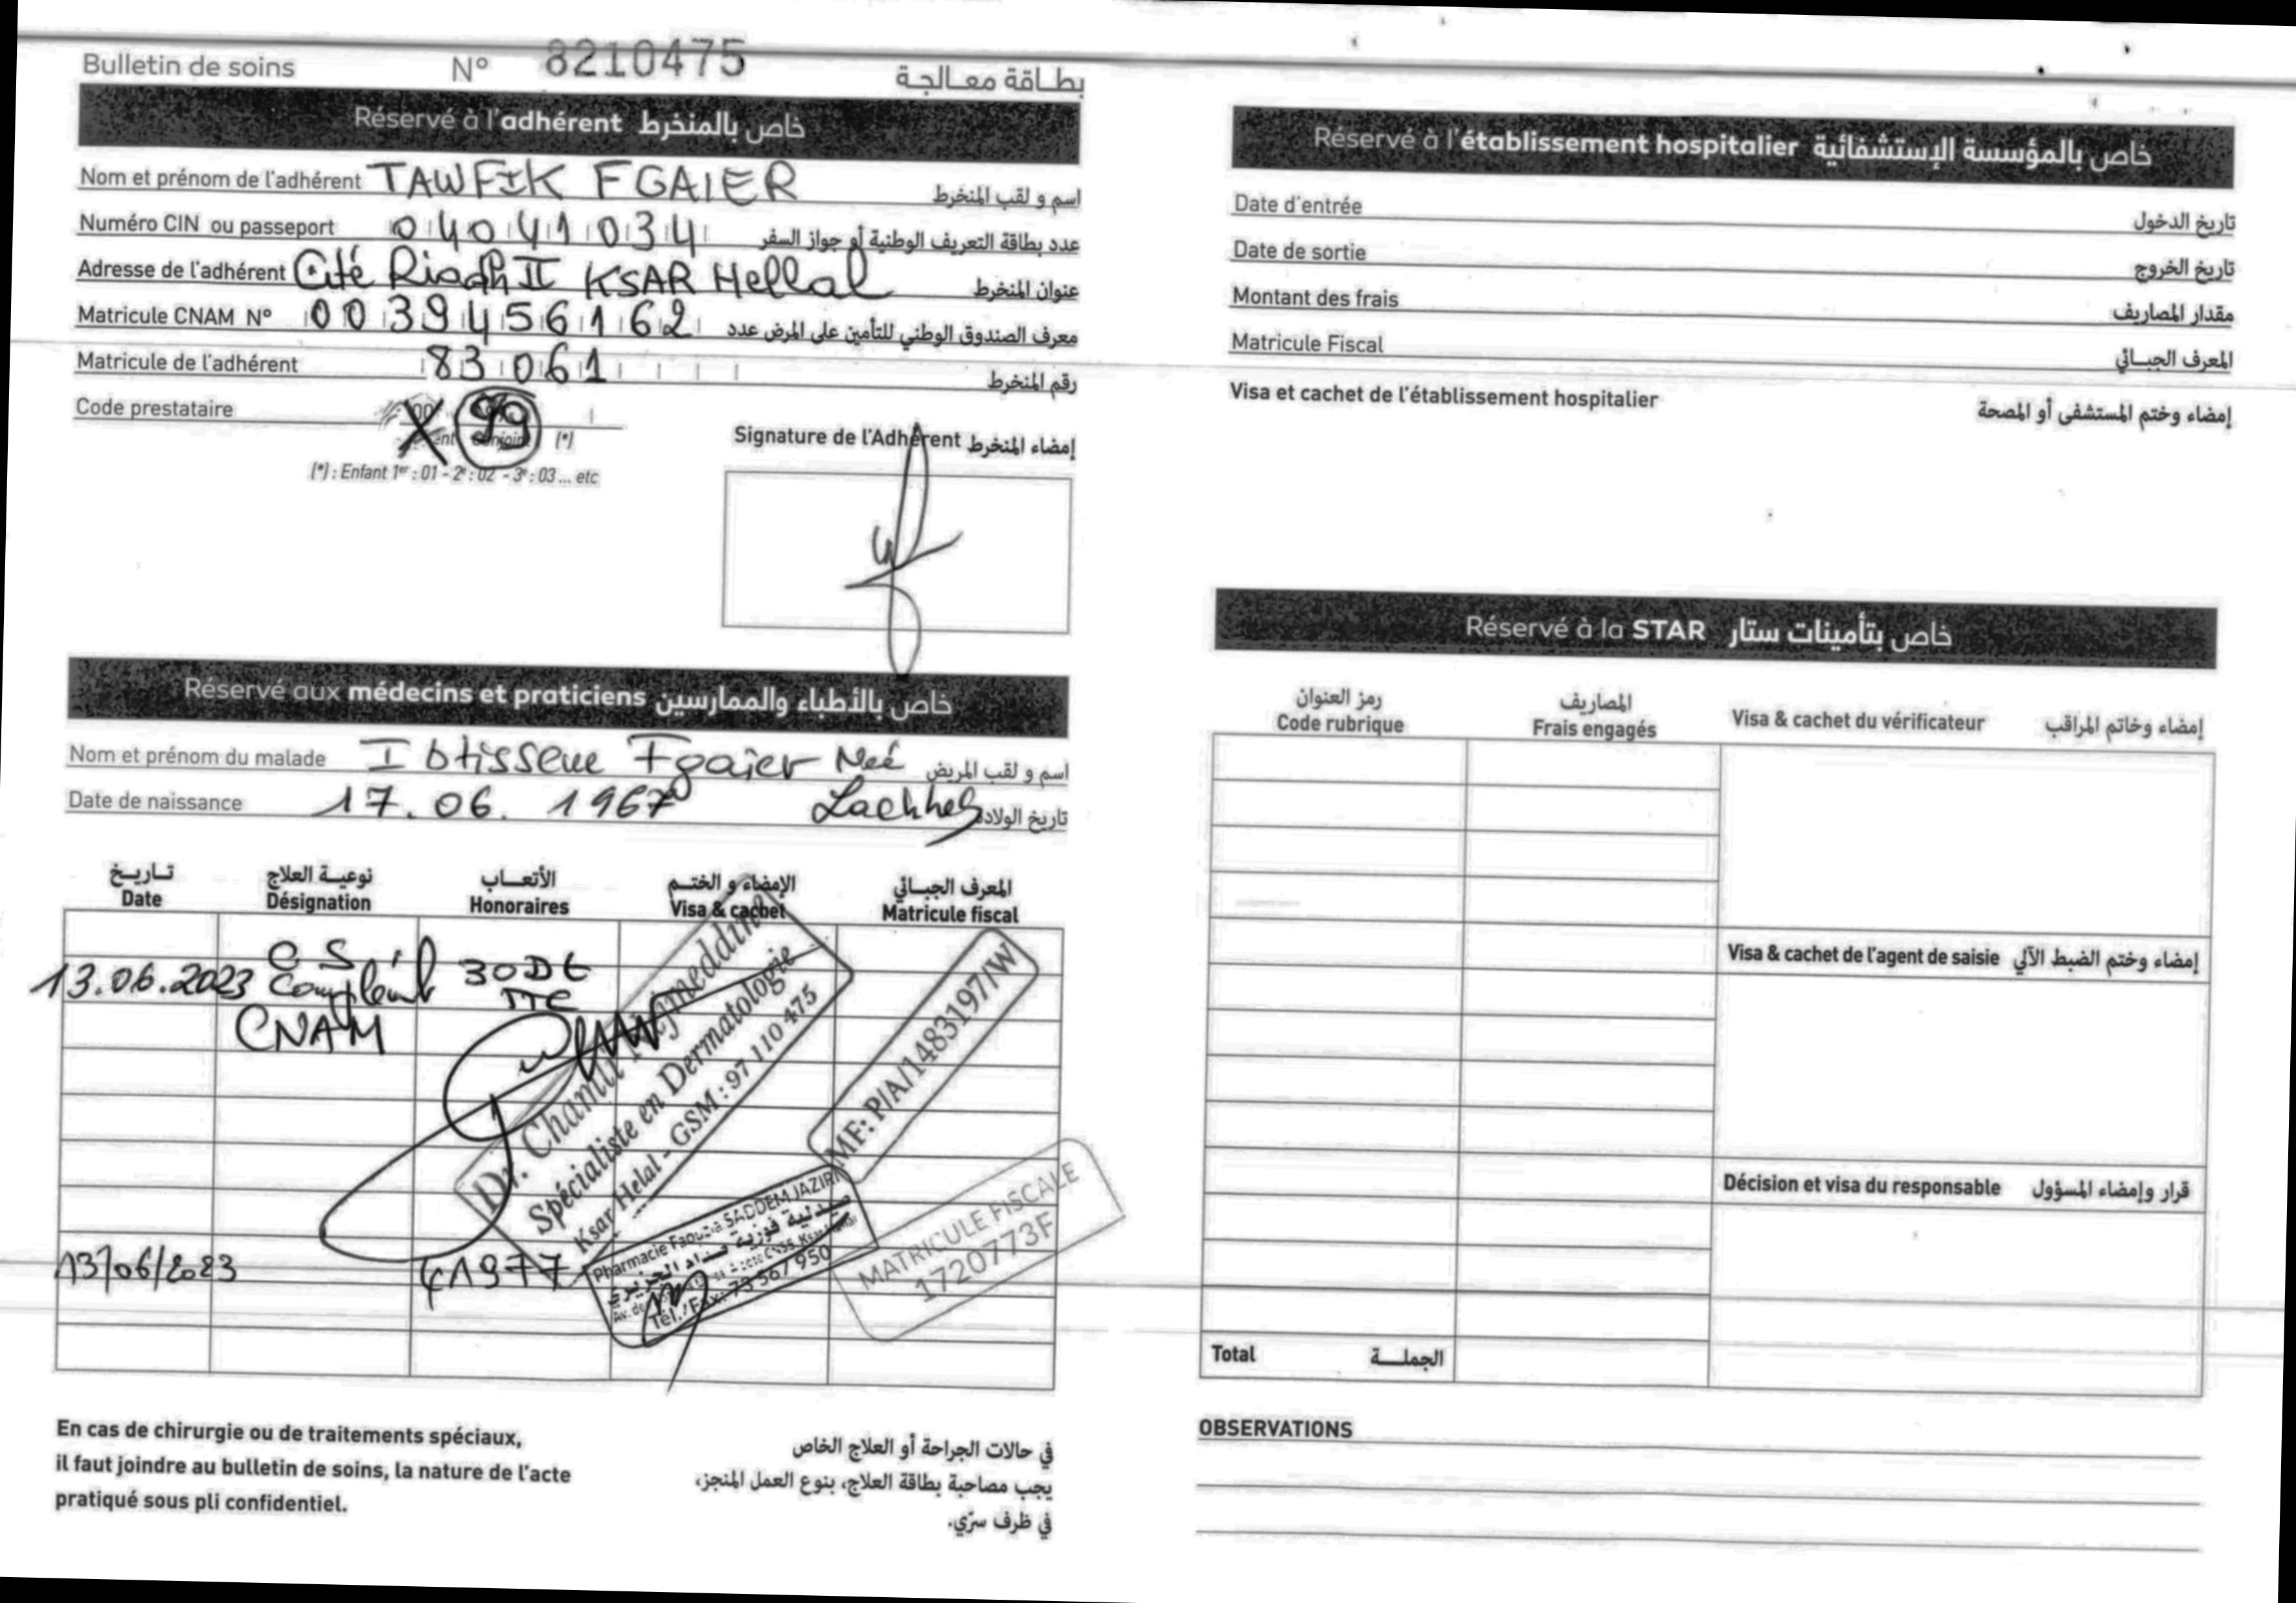 Bulletin de soins N° 8210475 بطاقة معالجة
Réservé à l'adhérent خاص بالمنخرط
Nom et prénom de l'adhérent TAWFIK FGAIER اسم و لقب المنخرط
Numéro CIN ou passeport 04041034 عدد بطاقة التعريف الوطنية أو جواز السفر
Adresse de l'adhérent Cité Riadh II KSAR Hellal عنوان المنخرط
Matricule CNAM N° 0039456162 معرف الصندوق الوطني للتأمين على المرض عدد
Matricule de l'adhérent 83061 رقم المنخرط
Code prestataire 00 99
Conjoint (*)
(*) : Enfant 1er : 01 - 2e : 02 - 3e : 03 ... etc
Signature de l'Adhérent إمضاء المنخرط
Réservé aux médecins et praticiens خاص بالأطباء والممارسين
Nom et prénom du malade Ibtisseme Fgaier Neé اسم و لقب المريض
Date de naissance 17.06.1967 Lachheb تاريخ الولادة
تاريخ نوعية العلاج الأتعاب الإمضاء و الختم المعرف الجبائي
Date Désignation Honoraires Visa & cachet Matricule fiscal
13.06.2023 CS 30Dt
Complémt TTC
CNAM
Dr. Chamli Najmeddine
Spécialiste en Dermatologie
Ksar Helal - GSM : 97 110 475
MF: P/A/1483197/W
13/06/2023 41977
Pharmacie Faouzia SADDEM JAZIRI
صيدلية فوزية صدام الجزيري
Tél./Fax: 73 567 950
MATRICULE FISCALE
1720773F
En cas de chirurgie ou de traitements spéciaux,
il faut joindre au bulletin de soins, la nature de l'acte
pratiqué sous pli confidentiel.
في حالات الجراحة أو العلاج الخاص
يجب مصاحبة بطاقة العلاج، بنوع العمل المنجز،
في ظرف سرّي.
Réservé à l'établissement hospitalier خاص بالمؤسسة الإستشفائية
Date d'entrée تاريخ الدخول
Date de sortie تاريخ الخروج
Montant des frais مقدار المصاريف
Matricule Fiscal المعرف الجبائي
Visa et cachet de l'établissement hospitalier إمضاء وختم المستشفى أو المصحة
Réservé à la STAR خاص بتأمينات ستار
رمز العنوان المصاريف
Code rubrique Frais engagés Visa & cachet du vérificateur إمضاء وخاتم المراقب
Visa & cachet de l'agent de saisie إمضاء وختم الضبط الآلي
Décision et visa du responsable قرار وإمضاء المسؤول
Total الجملة
OBSERVATIONS